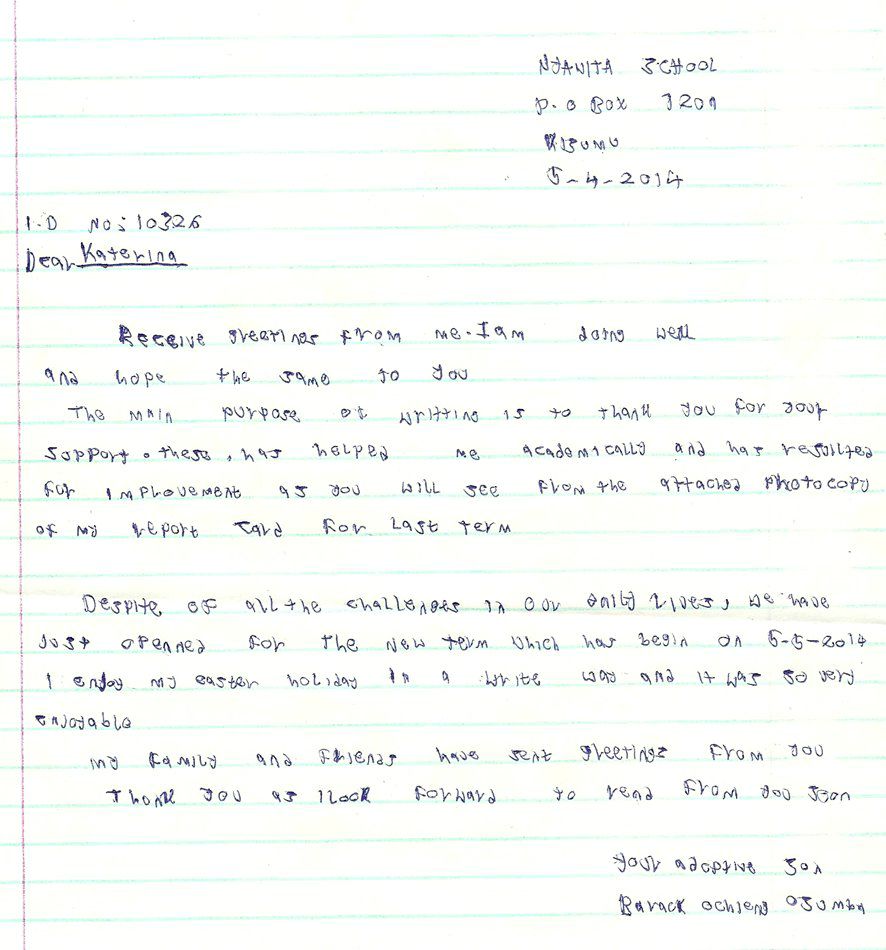 NJANITA SCHOOL
P.O BOX 3201
KISUMU
5-4-2014
I.D NO: 10326
Dear Katerina
Receive greetings from me. I am doing well
and hope the same to you
The main purpose of writting is to thank you for your
support. these, has helped me academically and has resulted
for improvement as you will see from the attached photocopy
of my report card for last term
Despite of all the challenges in our daily lives, we have
just openned for the new term which has begin on 5-5-2014
I enjoy my easter holiday in a write way and it was so very
enjoyable
my family and friends have sent greetings from you
Thank you as I look forward to read from you soon
your adoptive son
Barack ochieng osumba